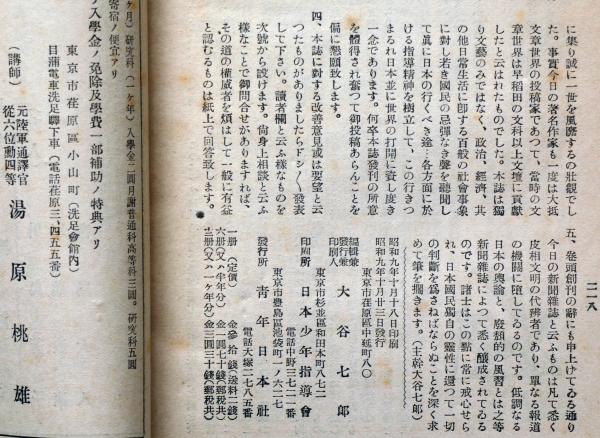 二一八
に集り誠に一世を風靡するの壯觀でし
た。事實今日の著名作家も一度は大抵
文章世界の投稿家であつて、當時の文
章世界は早稻田の文科以上文壇に貢獻
したと云はれたものでした。本誌は獨
り文藝のみではなく、政治、經濟、其
の他日常生活に卽する百般の社會事象
に對し若き國民の忌憚なき聲を聽聞し
て眞に日本の行くべき途・各方面に於
ける指導精神を樹立して、この行きつ
まれる日本並に世界の打開に資し度き
一念であります。何卒本誌發刊の所意
を體得され奮つて御投稿あらんことを
偏に懇願致します。
四、本誌に對する改善意見或は要望と云
つたものがありましたらドシ〳〵發表
して下さい。讀者欄と云ふ樣なものを
次號から設けます。尙身上相談と云ふ
樣なことで御問合せがありますれば、
その道の權威者を煩はして一般に有益
と認むるものは紙上で回答します。
五、卷頭創刊の辭にも申上げてゐる通り
今日の新聞雜誌と云ふものは凡て悉く
皮相文明の代辨者であり、單なる報道
の機關に堕してゐるのです。低調なる
日本の輿論と、廢頽的の風習とは之等
新聞雜誌によつて悉く釀成されてゐる
のです。諸士はこの點に常に戒心せら
れ、日本國民獨自の靈性に還つて一切
の判斷を爲さねばならぬことを深く求
めて筆を擱きます。(主幹大谷七郎)
昭和九年十月十八日印刷
昭和九年十月廿三日發行
東京市荏原區中延町八〇
編輯兼
發行兼
印刷人
大谷七郎
東京市杉並區和田本町八七二
印刷所 日本少年指導會
電話中野三七二一番
東京市豊島區池袋町一ノ六二七
發行所 靑年日本社
電話大塚二七八五番
(定價)
一册 金參拾錢(送料二錢)
六册(又ハ半年分) 金一圓七十錢(郵稅共)
十二册(又ハ一ケ年分)金三圓三十錢(郵稅共)
ケ月)研究科(一ケ年)入學金二圓月謝普通科高等科三圓。硏究科五圓
寄宿ノ便宜アリ
入學金ノ免除及學費一部補助ノ特典アリ
東京市荏原區小山町(洗足會館内)
目蒲電車洗足驛下車(電話荏原三、四五五番)
(講師)
元陸軍通譯官
從六位勳四等
湯原桃雄